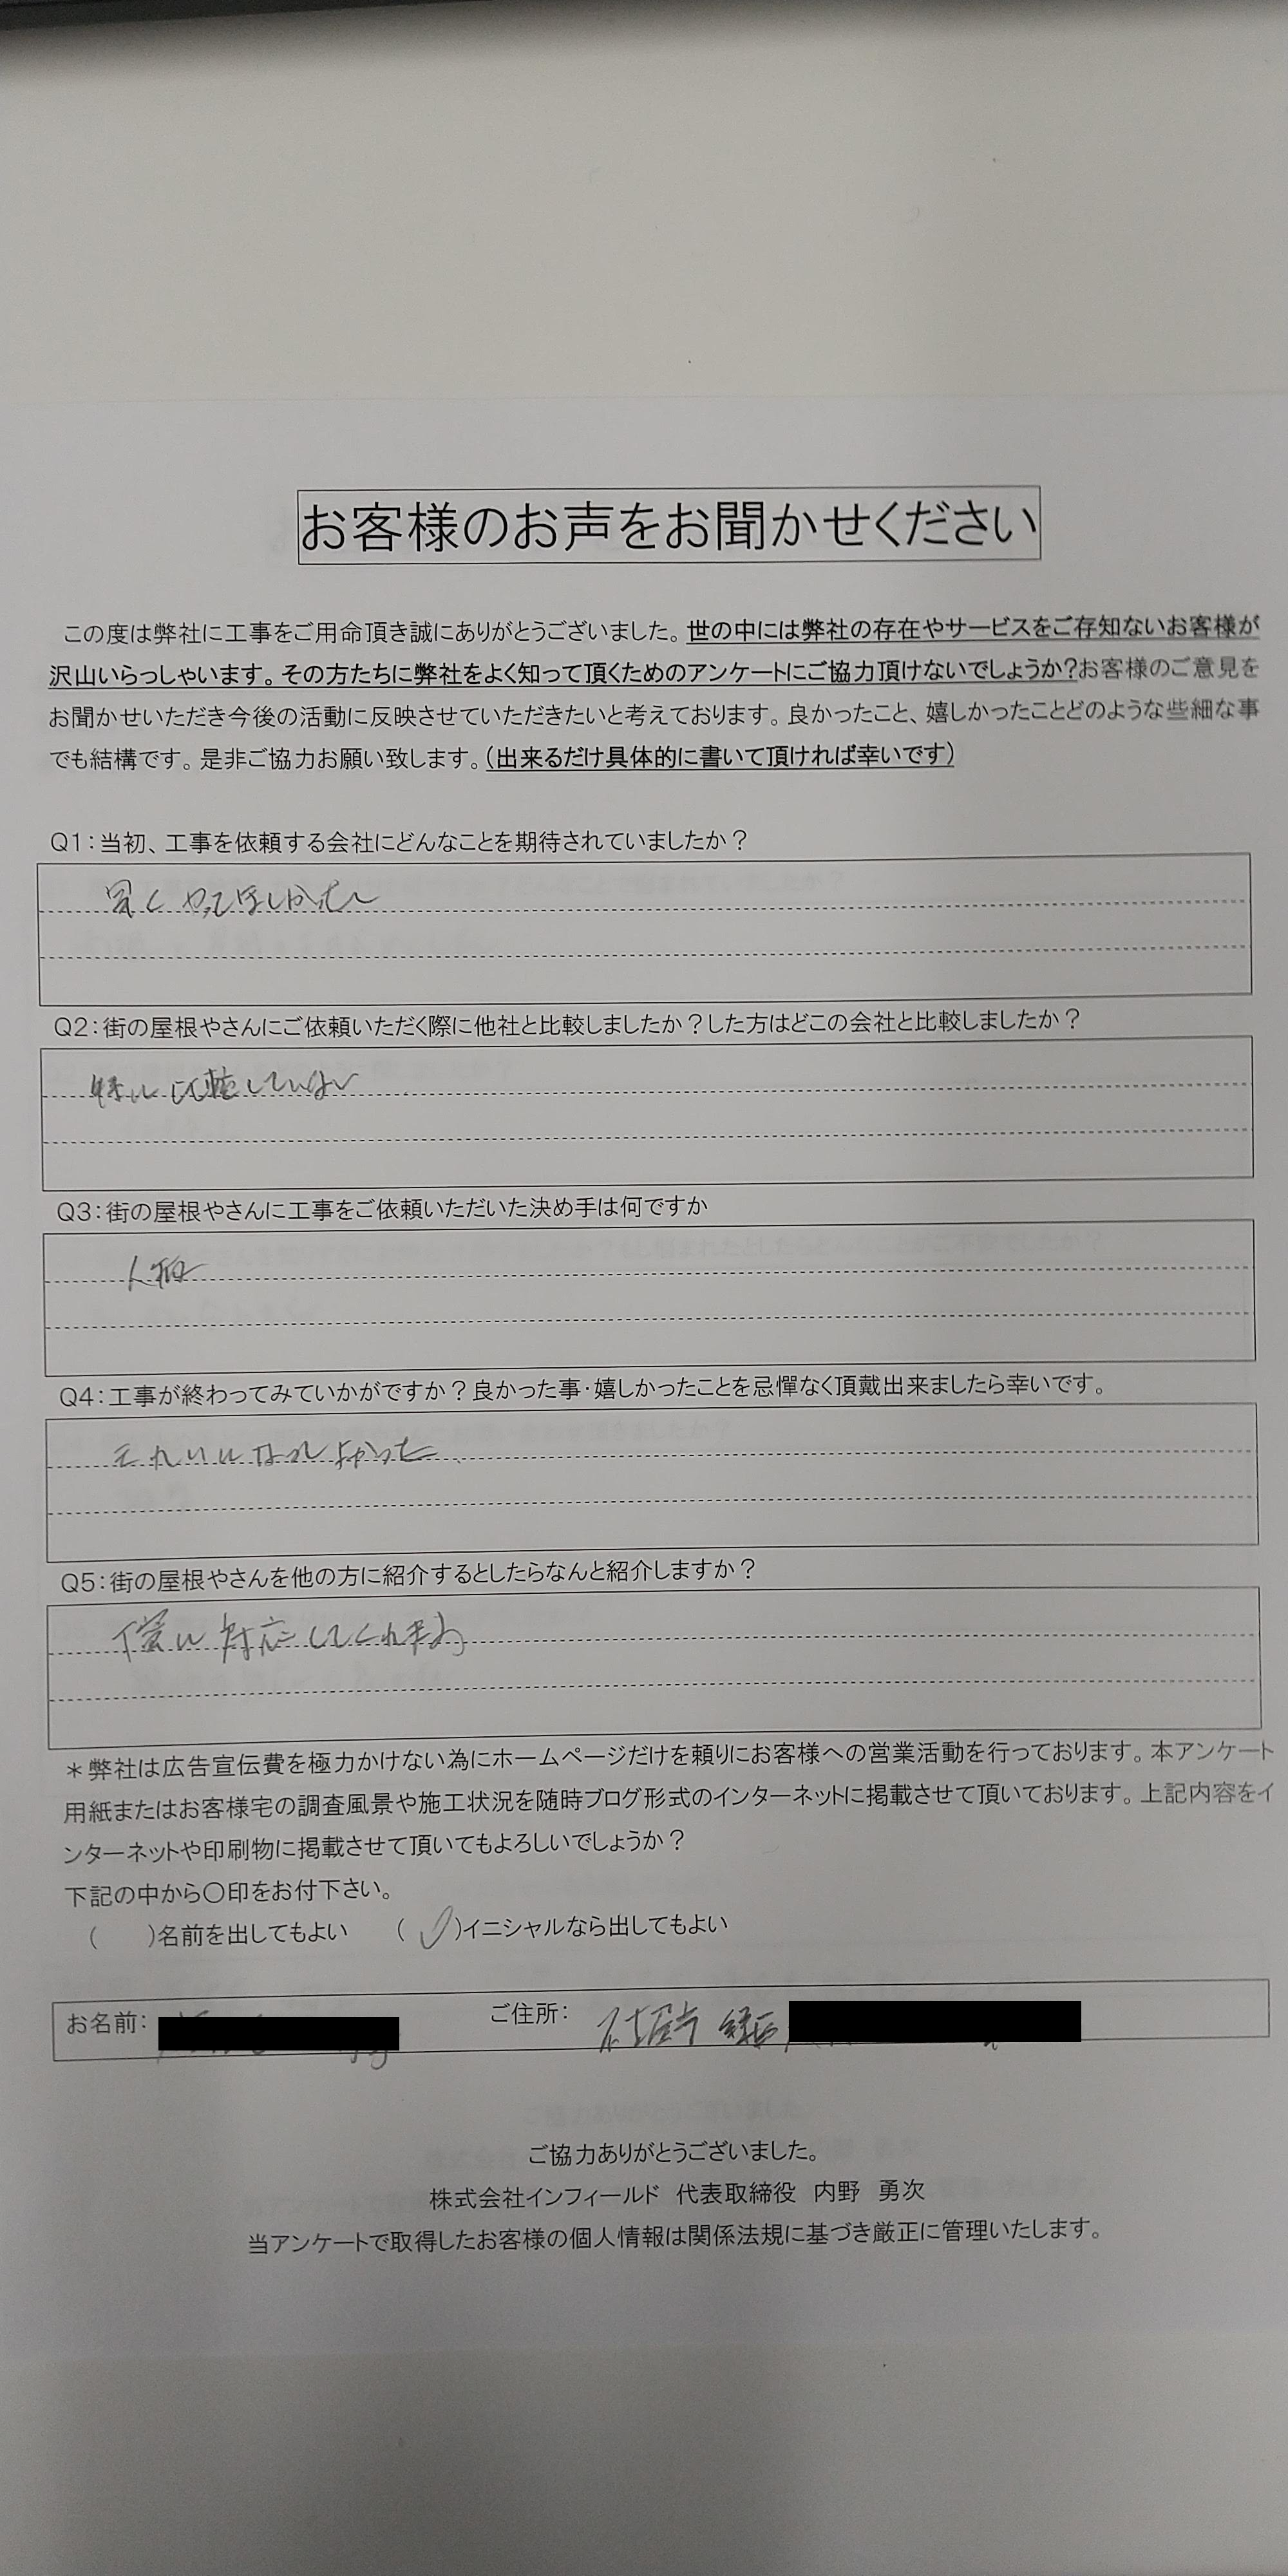 お客様のお声をお聞かせください
この度は弊社に工事をご用命頂き誠にありがとうございました。世の中には弊社の存在やサービスをご存知ないお客様が
沢山いらっしゃいます。その方たちに弊社をよく知って頂くためのアンケートにご協力頂けないでしょうか?お客様のご意見を
お聞かせいただき今後の活動に反映させていただきたいと考えております。良かったこと、嬉しかったことどのような些細な事
でも結構です。是非ご協力お願い致します。(出来るだけ具体的に書いて頂ければ幸いです)
Q1:当初、工事を依頼する会社にどんなことを期待されていましたか?
早くやってほしかった
Q2:街の屋根やさんにご依頼いただく際に他社と比較しましたか?した方はどこの会社と比較しましたか?
特に比較していない
Q3:街の屋根やさんに工事をご依頼いただいた決め手は何ですか
人柄
Q4:工事が終わってみていかがですか?良かった事・嬉しかったことを忌憚なく頂戴出来ましたら幸いです。
きれいになってよかった
Q5:街の屋根やさんを他の方に紹介するとしたらなんと紹介しますか?
に対応してくれます
*弊社は広告宣伝費を極力かけない為にホームページだけを頼りにお客様への営業活動を行っております。本アンケート
用紙またはお客様宅の調査風景や施工状況を随時ブログ形式のインターネットに掲載させて頂いております。上記内容をイ
ンターネットや印刷物に掲載させて頂いてもよろしいでしょうか?
下記の中から〇印をお付下さい。
(　　)名前を出してもよい　(✓)イニシャルなら出してもよい
お名前:　ご住所: 名古屋市 緑区
ご協力ありがとうございました。
株式会社インフィールド　代表取締役　内野　勇次
当アンケートで取得したお客様の個人情報は関係法規に基づき厳正に管理いたします。